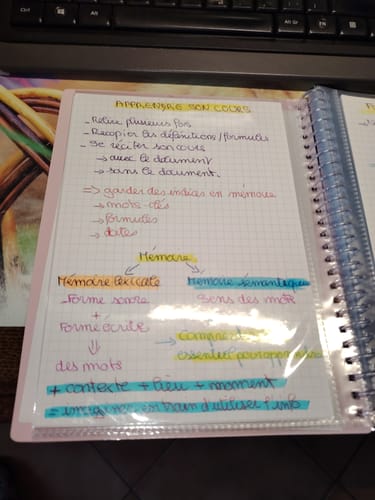 APPRENDRE SON COURS
- Relire plusieurs fois
- Recopier les définitions/formules
- Se réciter son cours
→ avec le document
→ sans le document.
=> garder des indices en mémoire
→ mots-clés
→ formules
→ dates
Mémoire
Mémoire lexicale Mémoire sémantique
- Forme sonore Sens des mots
+
Forme écrite
→ Comprendre
⇓ essentiel pour apprendre
des mots
+ contexte + lieu + moment
= en train d'utiliser l'info
Ctrl
Alt Gr
Fn